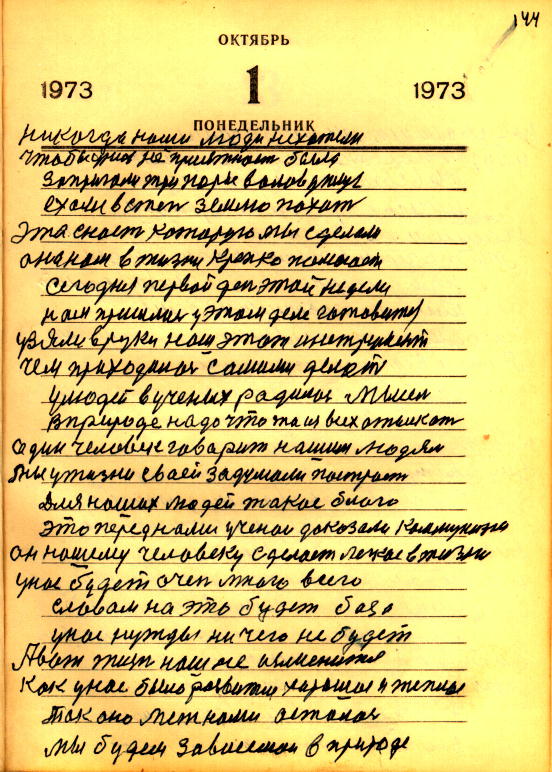 144
ОКТЯБРЬ
1973 1 1973
ПОНЕДЕЛЬНИК
Никогда наши люди нехотели
чтобы у них не приятност было
запрягали три пары волов
ехали встеп землю пахат
Эта снаст которую мы сделали
она нам в жизни крепко помогает
Сегодня первой ден этой недели
нам пришлос у этом деле готовится
узяли вруки наш этот инструмент
чем приходится самими делат
улюдей вученых родилас мысл
Вприроде надо что то из всех отыскат
один человек говорит нашим людям
Мы ужизни своей задумали построит
Для наших людей такое благо
Это перед нами ученои доказали Коммунизм
он нашему человеку сделает легкое вжизни
унас будет очен много всего
словом на это будет база
унас нужды ни чего не будет
А вот жизн наша не изменится
Как унас было развитие хорошое и теплое
Так оно меж нами осталос
мы будем зависеми в природе